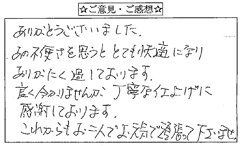 ☆ご意見・ご感想☆
ありがとうございました。
あの不便さを思うととても快適になり
ありがたく過しております。
良く分りませんが、丁寧な仕上げに
感謝しております。
これからもお二人でお元気で頑張って下さいませ。